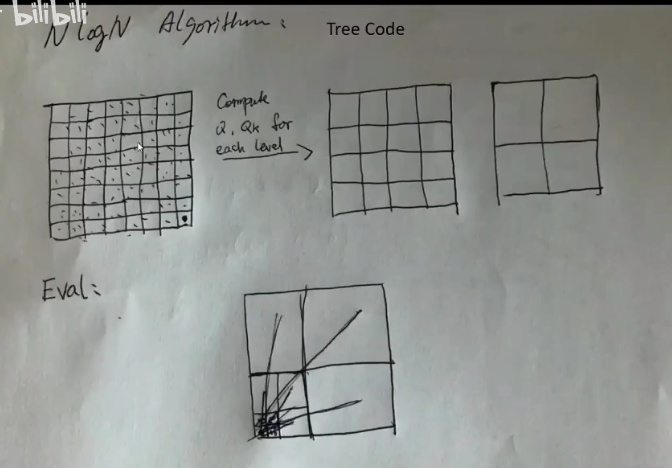 bilibili
NlogN Algorithm:
Tree Code
Compute
Q, Qk for
each level
Eval: